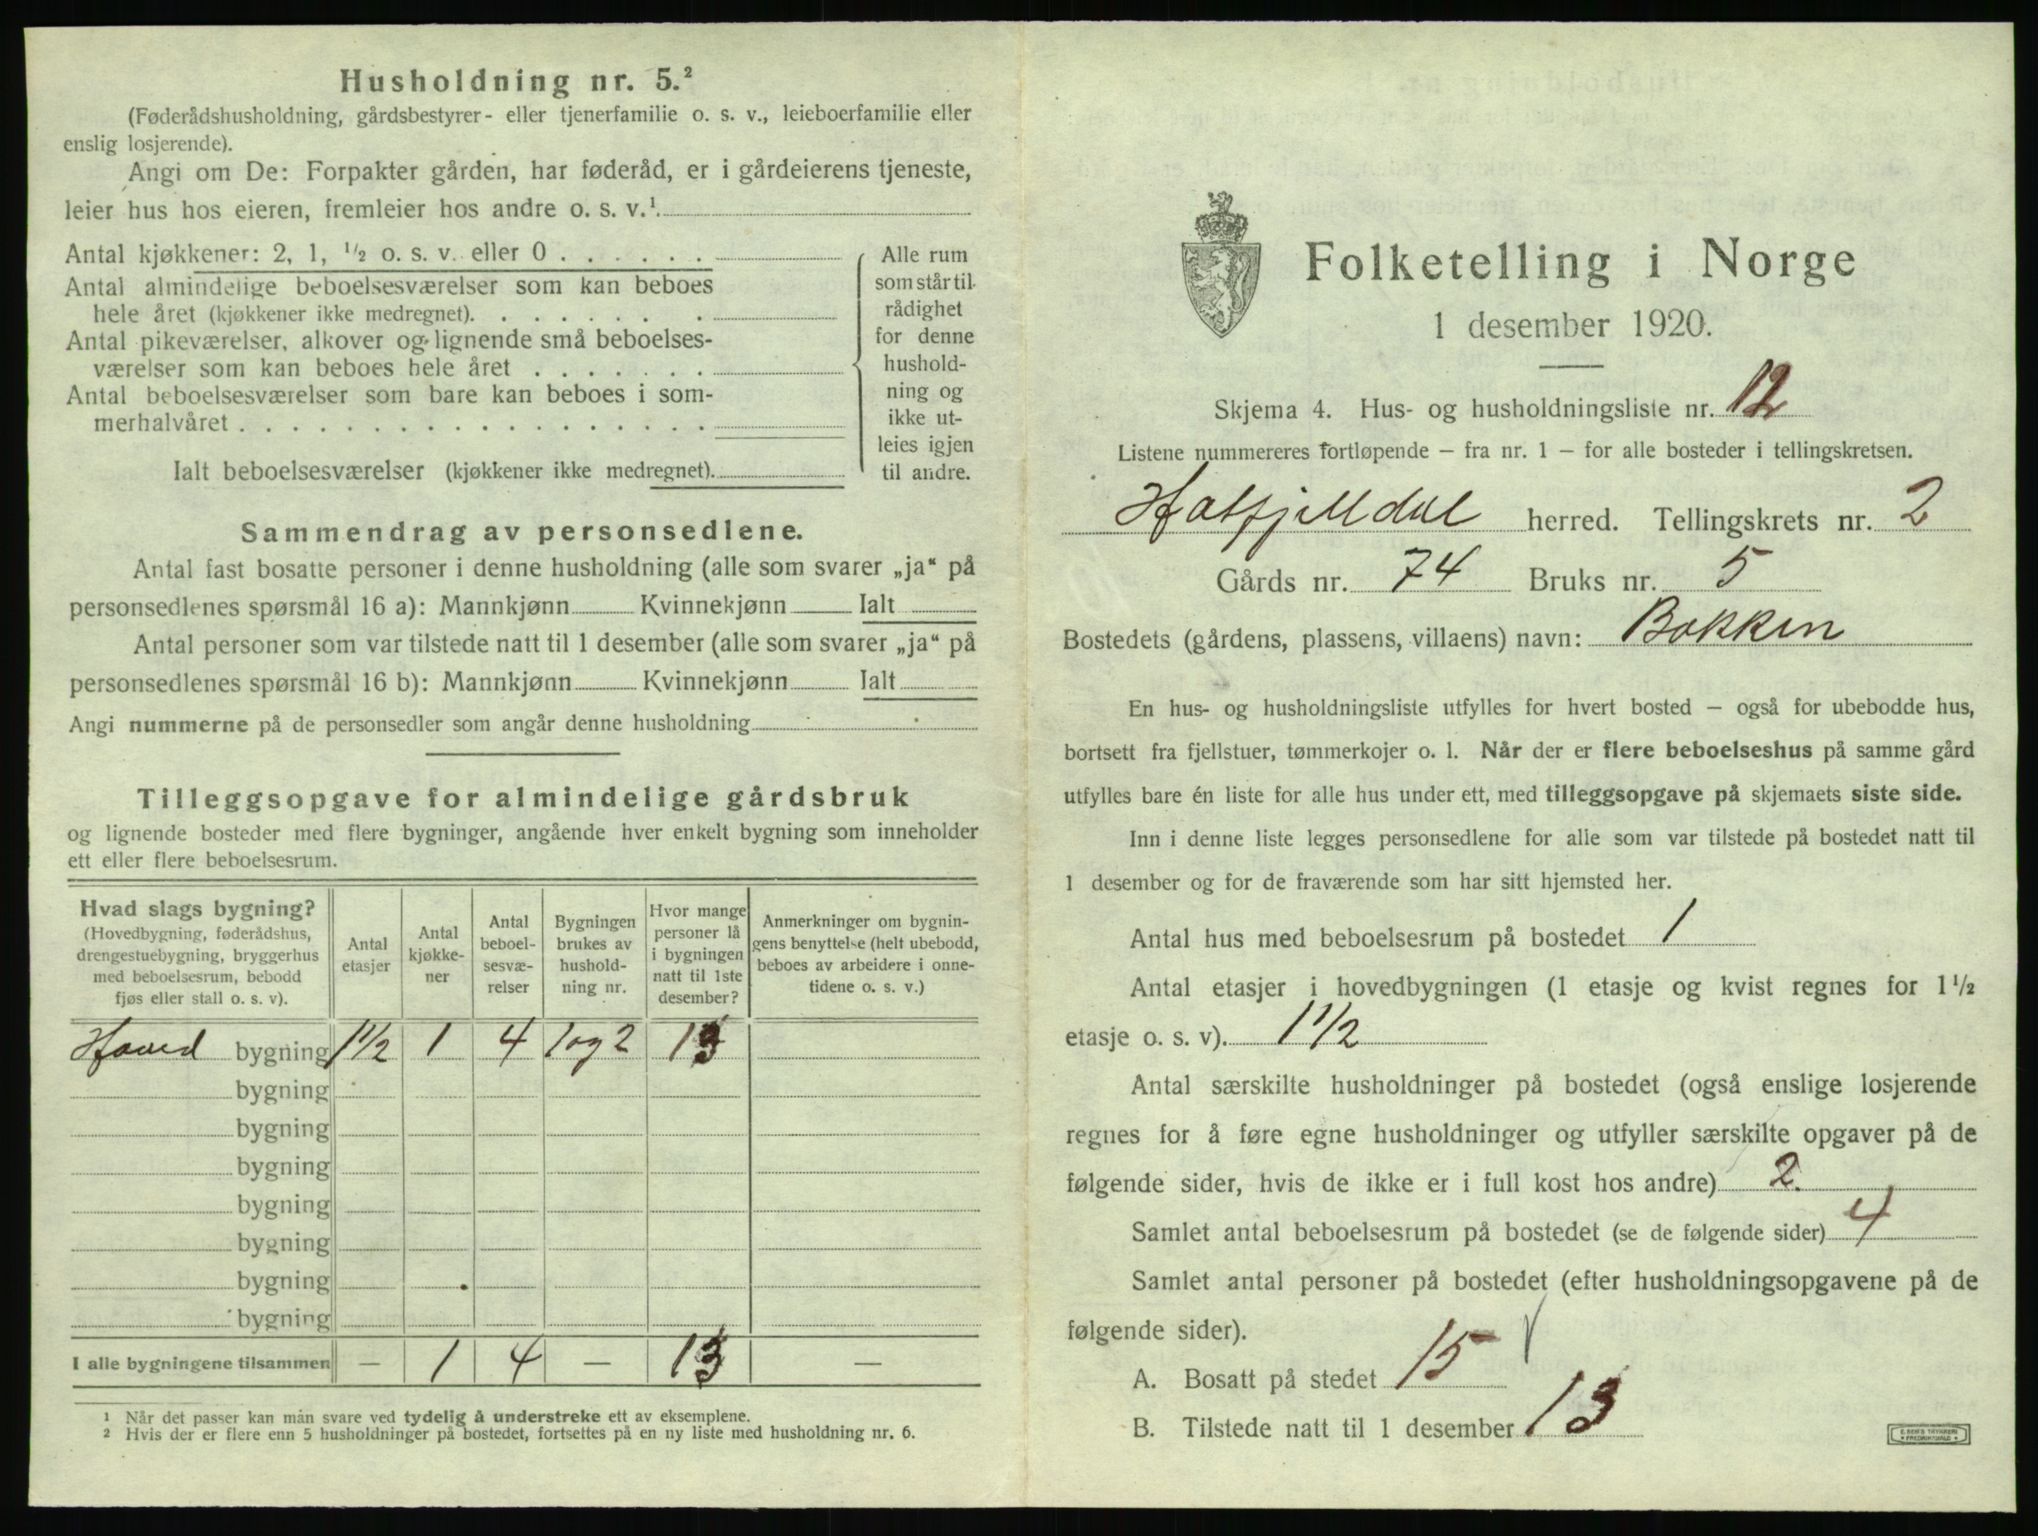 Husholdning nr. 5.²
(Føderådshusholdning, gårdsbestyrer- eller tjenerfamilie o. s. v., leieboerfamilie eller
enslig losjerende).
Angi om De: Forpakter gården, har føderåd, er i gårdeierens tjeneste,
leier hus hos eieren, fremleier hos andre o. s. v.¹
Antal kjøkkener: 2, 1, ½ o. s. v. eller 0 . . . . . .
Antal almindelige beboelsesværelser som kan beboes
hele året (kjøkkener ikke medregnet). . . . . . . .
Antal pikeværelser, alkover og lignende små beboelses-
værelser som kan beboes hele året . . . . . . .
Antal beboelsesværelser som bare kan beboes i som-
merhalvåret . . . . . . . . . . . . . . . . . .
Ialt beboelsesværelser (kjøkkener ikke medregnet).
Alle rum
som står til
rådighet
for denne
hushold-
ning og
ikke ut-
leies igjen
til andre.
Sammendrag av personsedlene.
Antal fast bosatte personer i denne husholdning (alle som svarer „ja“ på
personsedlenes spørsmål 16 a): Mannkjønn Kvinnekjønn Ialt
Antal personer som var tilstede natt til 1 desember (alle som svarer „ja“ på
personsedlenes spørsmål 16 b): Mannkjønn Kvinnekjønn Ialt
Angi nummerne på de personsedler som angår denne husholdning
Tilleggsopgave for almindelige gårdsbruk
og lignende bosteder med flere bygninger, angående hver enkelt bygning som inneholder
ett eller flere beboelsesrum.
Hvad slags bygning?
(Hovedbygning, føderådshus,
drengestuebygning, bryggerhus
med beboelsesrum, bebodd
fjøs eller stall o. s. v).
Antal
etasjer
Antal
kjøkke-
ner
Antal
beboel-
sesvæ-
relser
Bygningen
brukes av
hushold-
ning nr.
Hvor mange
personer lå
i bygningen
natt til 1ste
desember?
Anmerkninger om bygnin-
gens benyttelse (helt ubebodd,
beboes av arbeidere i onne-
tidene o. s. v.)
Hoved bygning 1½ 1 4 1 og 2 13
bygning
bygning
bygning
bygning
bygning
bygning
bygning
I alle bygningene tilsammen — 1 4 — 13 —
1 Når det passer kan man svare ved tydelig å understreke ett av eksemplene.
2 Hvis der er flere enn 5 husholdninger på bostedet, fortsettes på en ny liste med husholdning nr. 6.
Folketelling i Norge
1 desember 1920.
Skjema 4. Hus- og husholdningsliste nr. 12
Listene nummereres fortløpende – fra nr. 1 – for alle bosteder i tellingskretsen.
Hatfjelldal herred. Tellingskrets nr. 2
Gårds nr. 74 Bruks nr. 5
Bostedets (gårdens, plassens, villaens) navn: Bakken
En hus- og husholdningsliste utfylles for hvert bosted – også for ubebodde hus,
bortsett fra fjellstuer, tømmerkojer o. l. Når der er flere beboelseshus på samme gård
utfylles bare én liste for alle hus under ett, med tilleggsopgave på skjemaets siste side.
Inn i denne liste legges personsedlene for alle som var tilstede på bostedet natt til
1 desember og for de fraværende som har sitt hjemsted her.
Antal hus med beboelsesrum på bostedet 1
Antal etasjer i hovedbygningen (1 etasje og kvist regnes for 1½
etasje o. s. v). 1½
Antal særskilte husholdninger på bostedet (også enslige losjerende
regnes for å føre egne husholdninger og utfyller særskilte opgaver på de
følgende sider, hvis de ikke er i full kost hos andre) 2.
Samlet antal beboelsesrum på bostedet (se de følgende sider) 4
Samlet antal personer på bostedet (efter husholdningsopgavene på de
følgende sider).
A. Bosatt på stedet 15
B. Tilstede natt til 1 desember 13